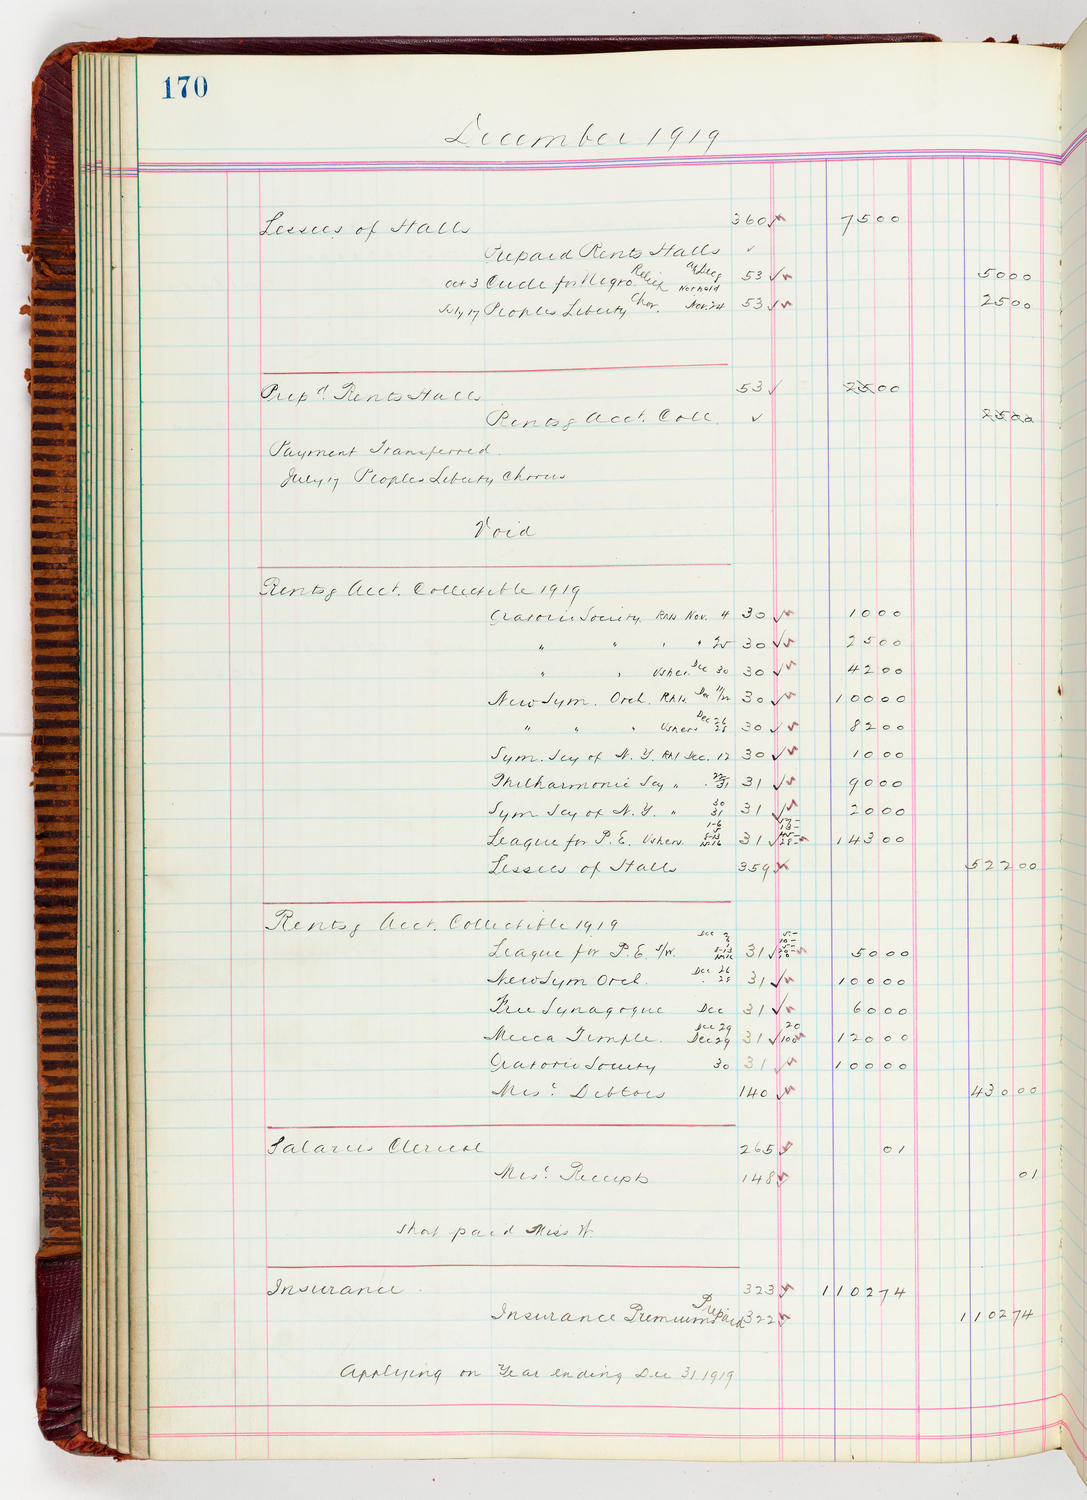 170
December 1919
Lessees of Halls 360 7500
Prepaid Rents Halls
Oct 3 Circle for Negro Relief not held 53 5000
July 17 Peoples Liberty Chor. Nov. 24 53 2500
Prepd. Rents Halls 53 2500
Rents & Acct. Coll. 2500
Payment Transferred
July 17 Peoples Liberty Chorus
Void
Rents & Acct. Collectible 1919
Oratorio Society Rhl Nov. 4 30 1000
" " " " 25 30 2500
" " Ushers Dec 30 30 4200
New Sym. Orch. Rhls. 30 10000
" " " Ushers Dec 26 28 30 8200
Sym. Scy of N.Y. Rhl Dec. 12 30 1000
Philharmonic Scy " 31 9000
Sym Scy of N.Y. " 30 31 31 2000
League for P.E. Ushers 31 14300
Lessees of Halls 359 52200
Rents & Acct. Collectible 1919
League for P.E. Dec 31 5000
New Sym Orch. Dec 26 28 31 10000
Free Synagogue Dec 31 6000
Mecca Temple. Dec 29 Dec 29 31 20 100 12000
Oratorio Society 30 31 10000
Misc. Debtors 140 43000
Salaries Clerical 265 01
Misc. Receipts 148 01
Short paid Miss W.
Insurance 323 110274
Insurance Premiums Prepaid 322 110274
Applying on Year ending Dec 31. 1919